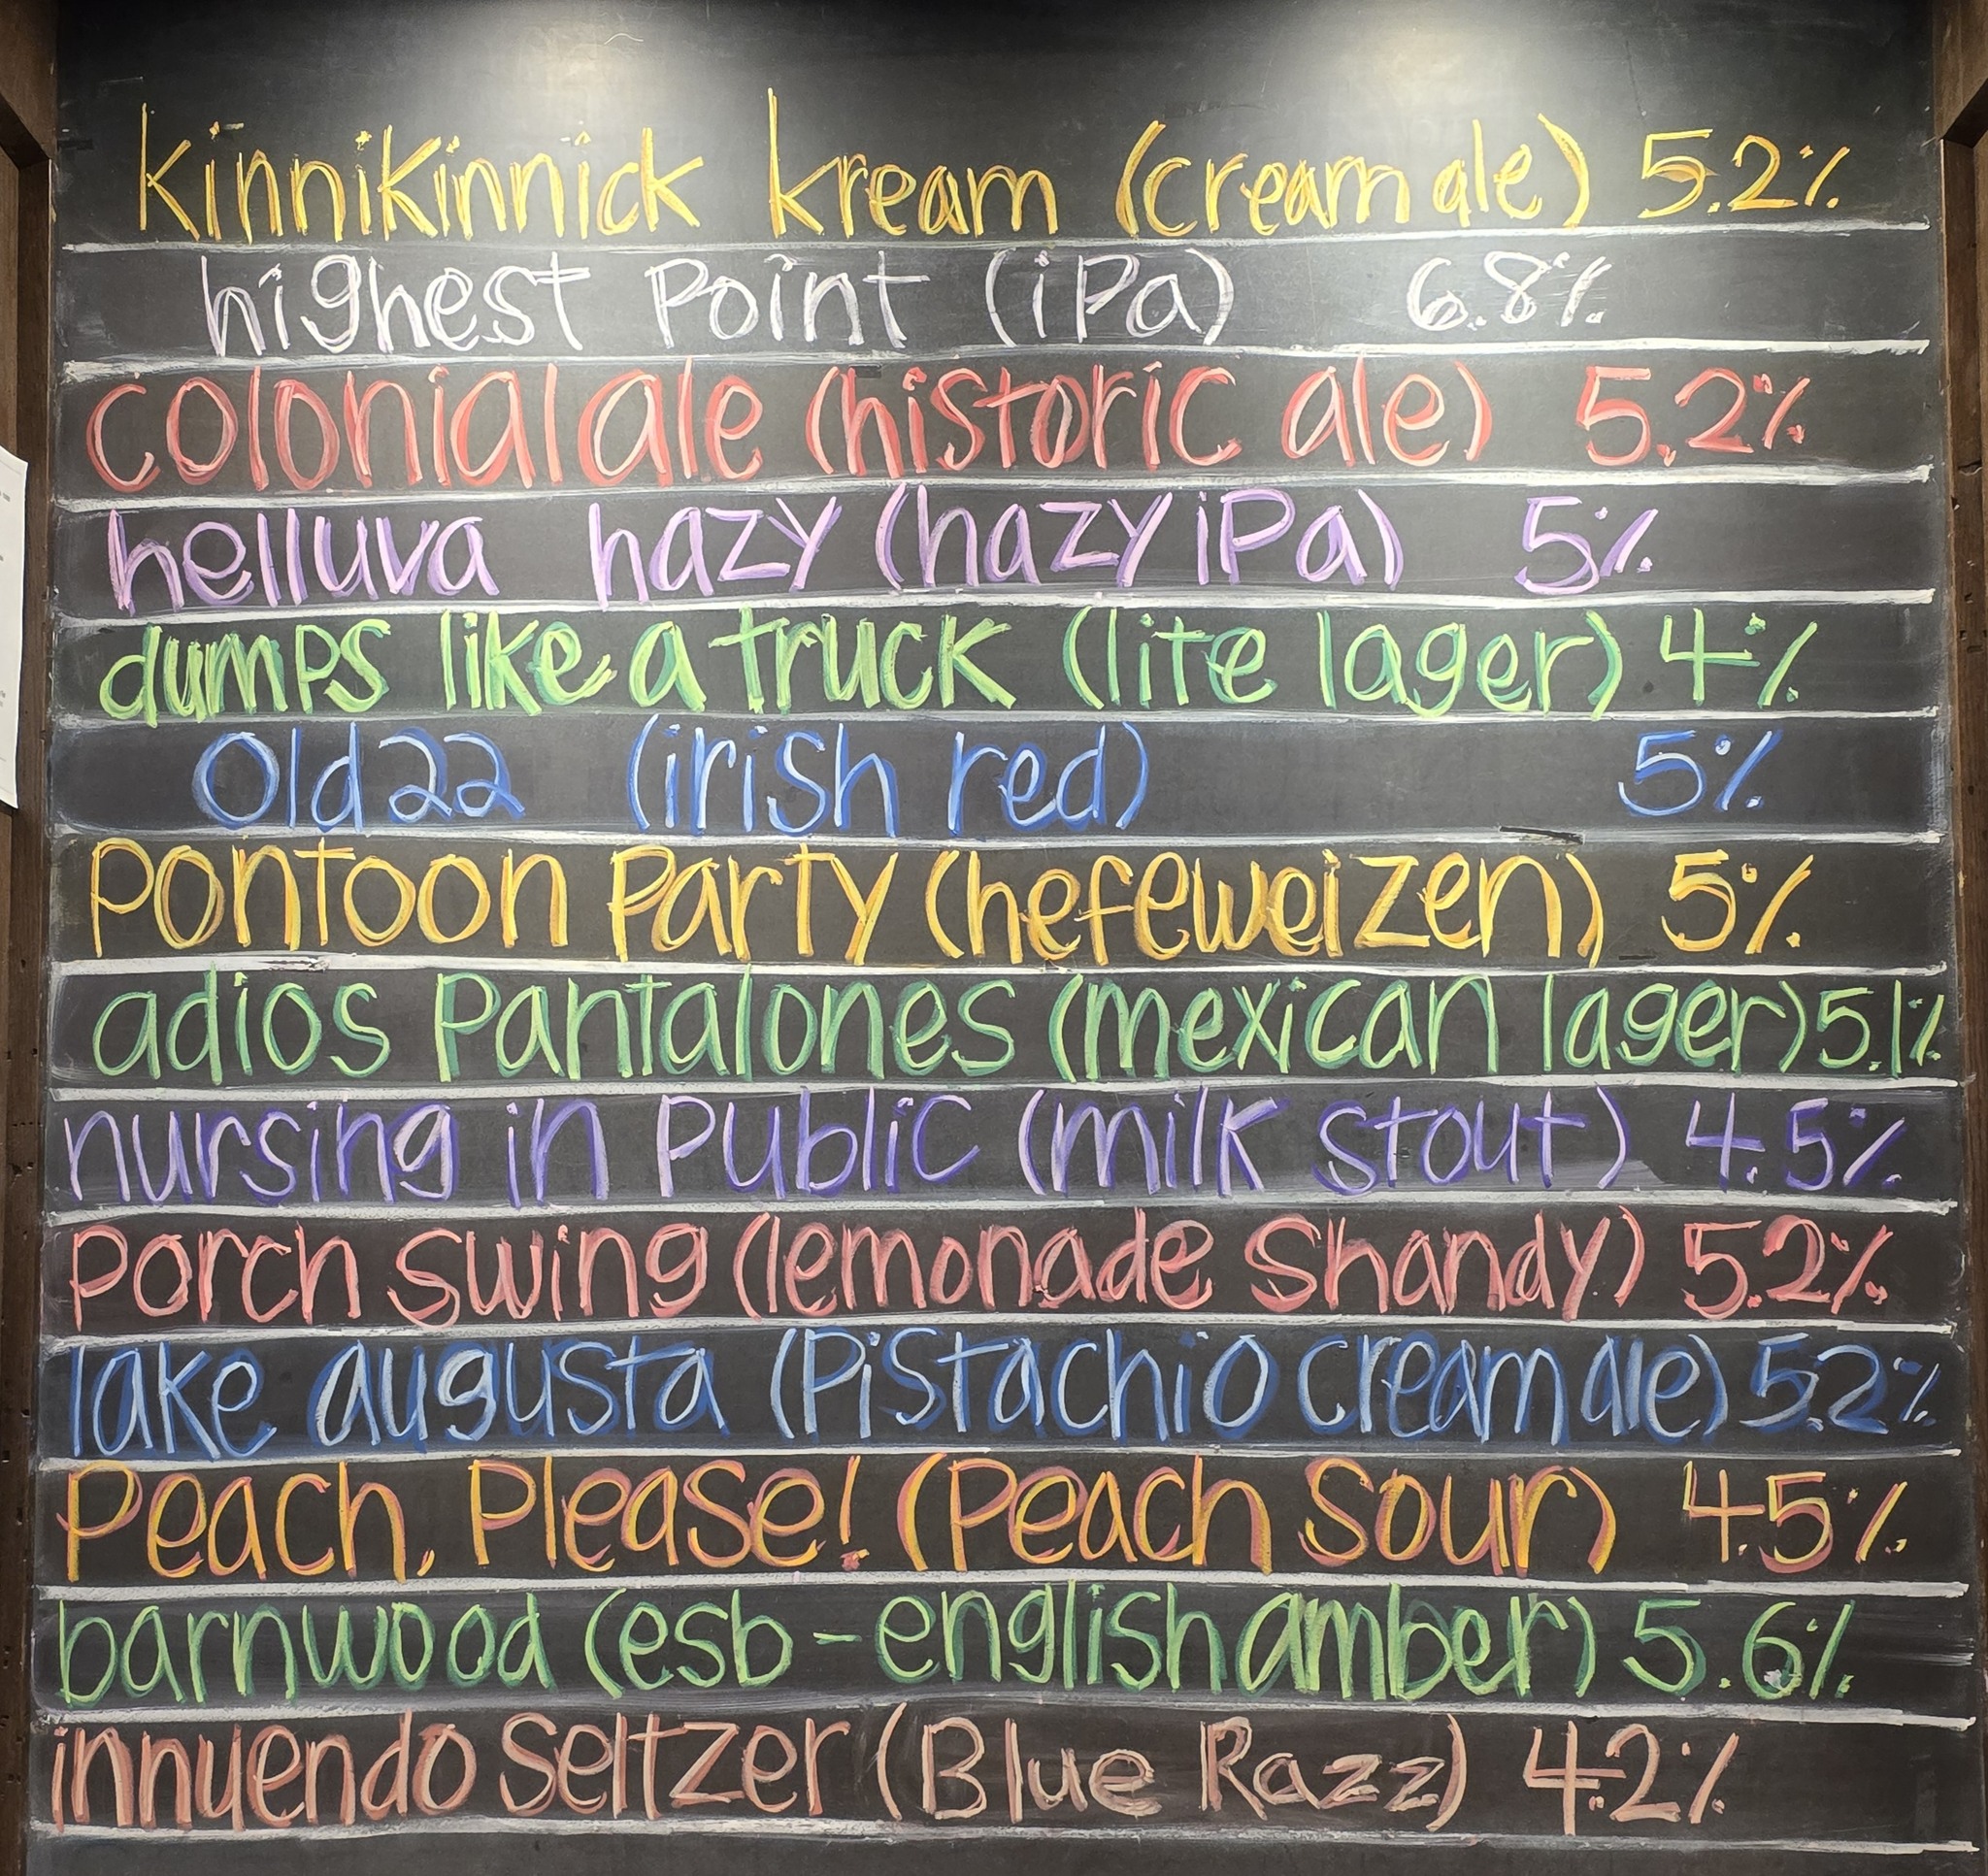 kinnikinnick kream (cream ale) 5.2%
highest Point (iPa) 6.8%
colonial ale (historic ale) 5.2%
helluva hazy (hazy iPa) 5%
dumps like a truck (lite lager) 4%
Old 22 (irish red) 5%
Pontoon Party (hefeweizen) 5%
adios Pantalones (mexican lager) 5.1%
nursing in Public (milk stout) 4.5%
Porch swing (lemonade Shandy) 5.2%
lake augusta (Pistachio cream ale) 5.2%
Peach, Please! (Peach Sour) 4.5%
barnwood (esb - english amber) 5.6%
innuendo Seltzer (Blue Razz) 4.2%